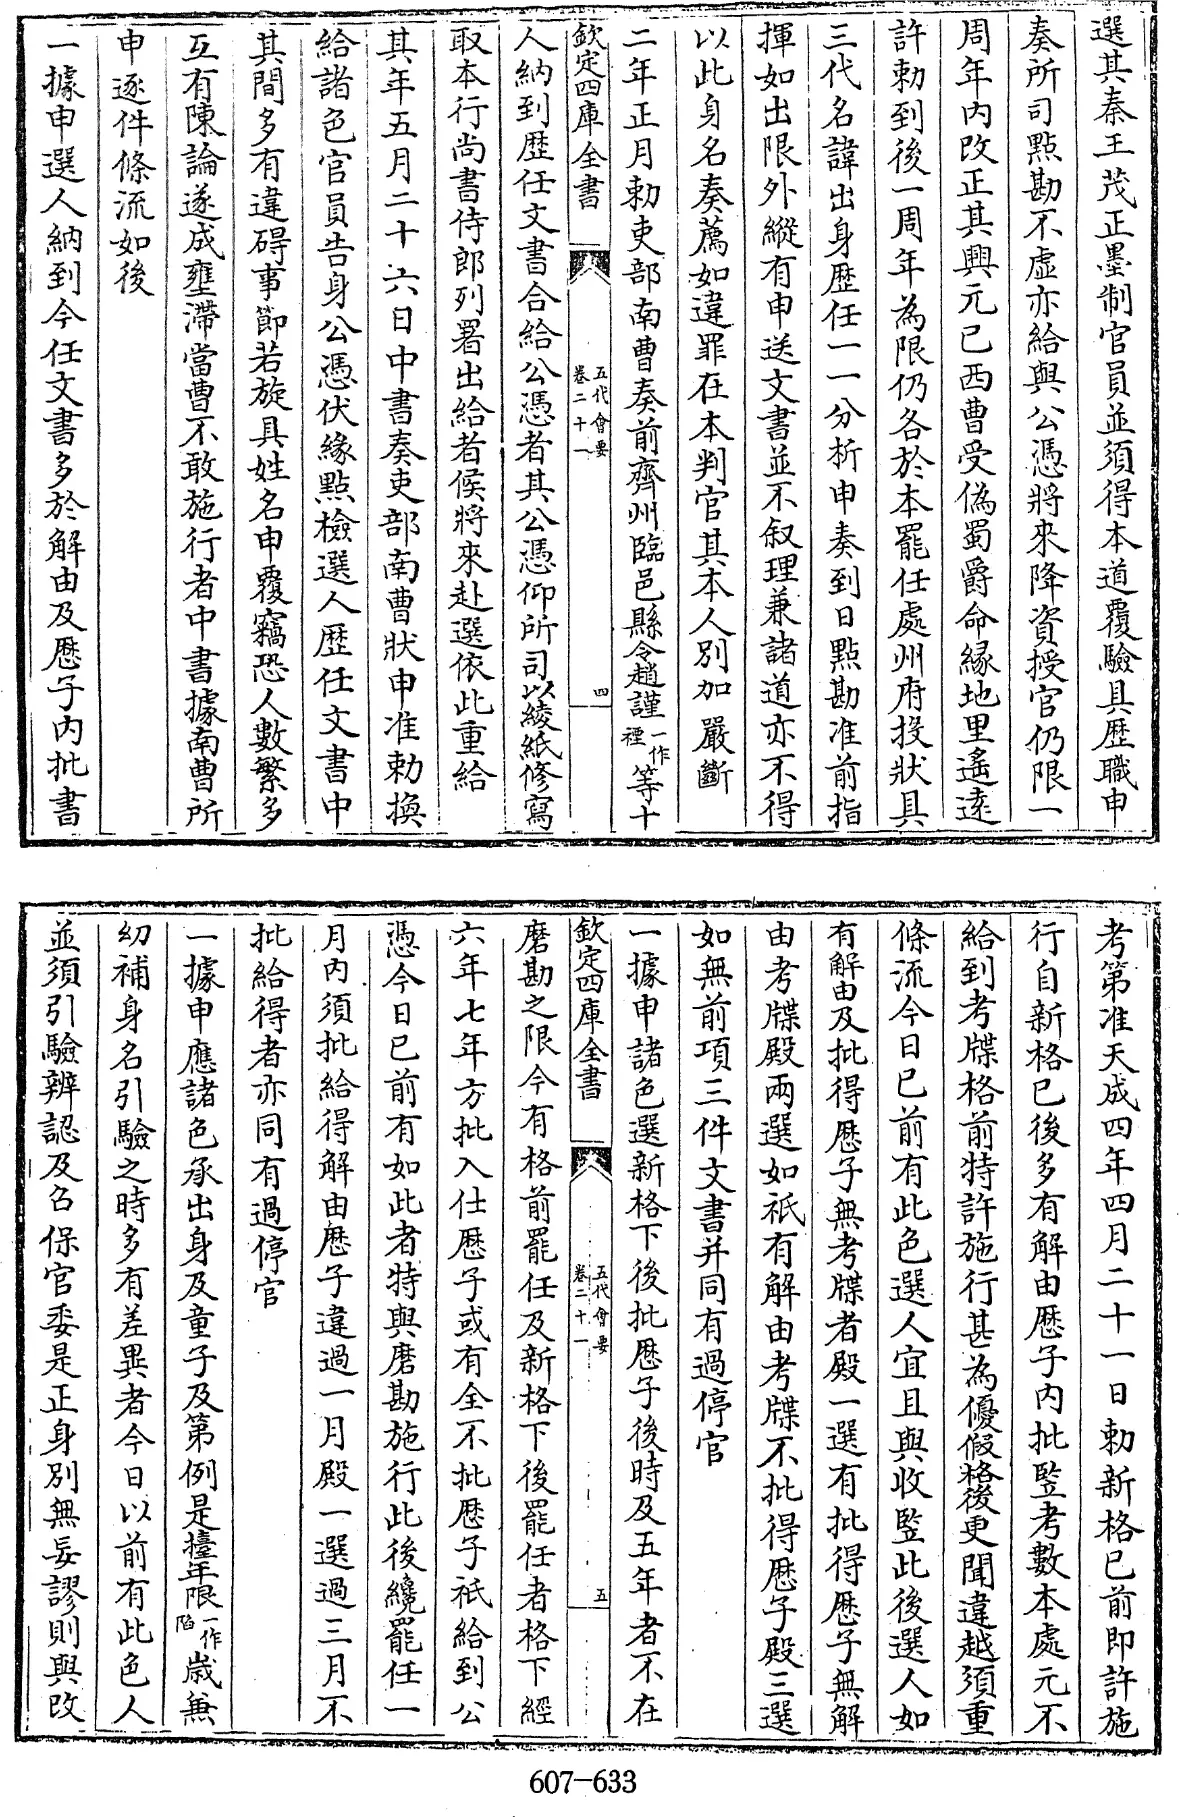 選其秦王茂正墨制官員並須得本道覆驗具歷職申
奏所司點勘不虛亦給與公憑將來降資授官仍限一
周年內改正其興元已西曹受偽蜀爵命緣地里遙遠
許勅到後一周年為限仍各於本罷任處州府投狀具
三代名諱出身歷任一一分析申奏到日點勘准前指
揮如出限外縱有申送文書並不叙理兼諸道亦不得
以此身名奏薦如違罪在本判官其本人別加嚴斷
二年正月勅吏部南曹奏前齊州臨邑縣令趙謹一作禋等十
欽定四庫全書
五代會要
卷二十一
四
人納到歷任文書合給公憑者其公憑仰所司以綾紙修寫
取本行尚書侍郎列署出給者候將來赴選依此重給
其年五月二十六日中書奏吏部南曹狀申准勅換
給諸色官員告身公憑伏緣點檢選人歷任文書中
其間多有違碍事節若旋具姓名申覆竊恐人數繁多
互有陳論遂成壅滯當曹不敢施行者中書據南曹所
申逐件條流如後
一據申選人納到今任文書多於解由及歷子內批書
考第准天成四年四月二十一日勅新格已前即許施
行自新格已後多有解由歷子內批監考數本處元不
給到考牒格前特許施行甚為優假格後更聞違越須重
條流今日已前有此色選人宜且與收監此後選人如
有解由及批得歷子無考牒者殿一選有批得歷子無解
由考牒殿兩選如祇有解由考牒不批得歷子殿三選
如無前項三件文書并同有過停官
一據申諸色選新格下後批歷子後時及五年者不在
欽定四庫全書
五代會要
卷二十一
五
磨勘之限今有格前罷任及新格下後罷任者格下經
六年七年方批入仕歷子或有全不批歷子祇給到公
憑今日已前有如此者特與磨勘施行此後纔罷任一
月內須批給得解由歷子違過一月殿一選過三月不
批給得者亦同有過停官
一據申應諸色承出身及童子及第例是擡年限一作陷歲無
幼補身名引驗之時多有差異者今日以前有此色人
並須引驗辨認及召保官委是正身別無妄謬則與改
607-633